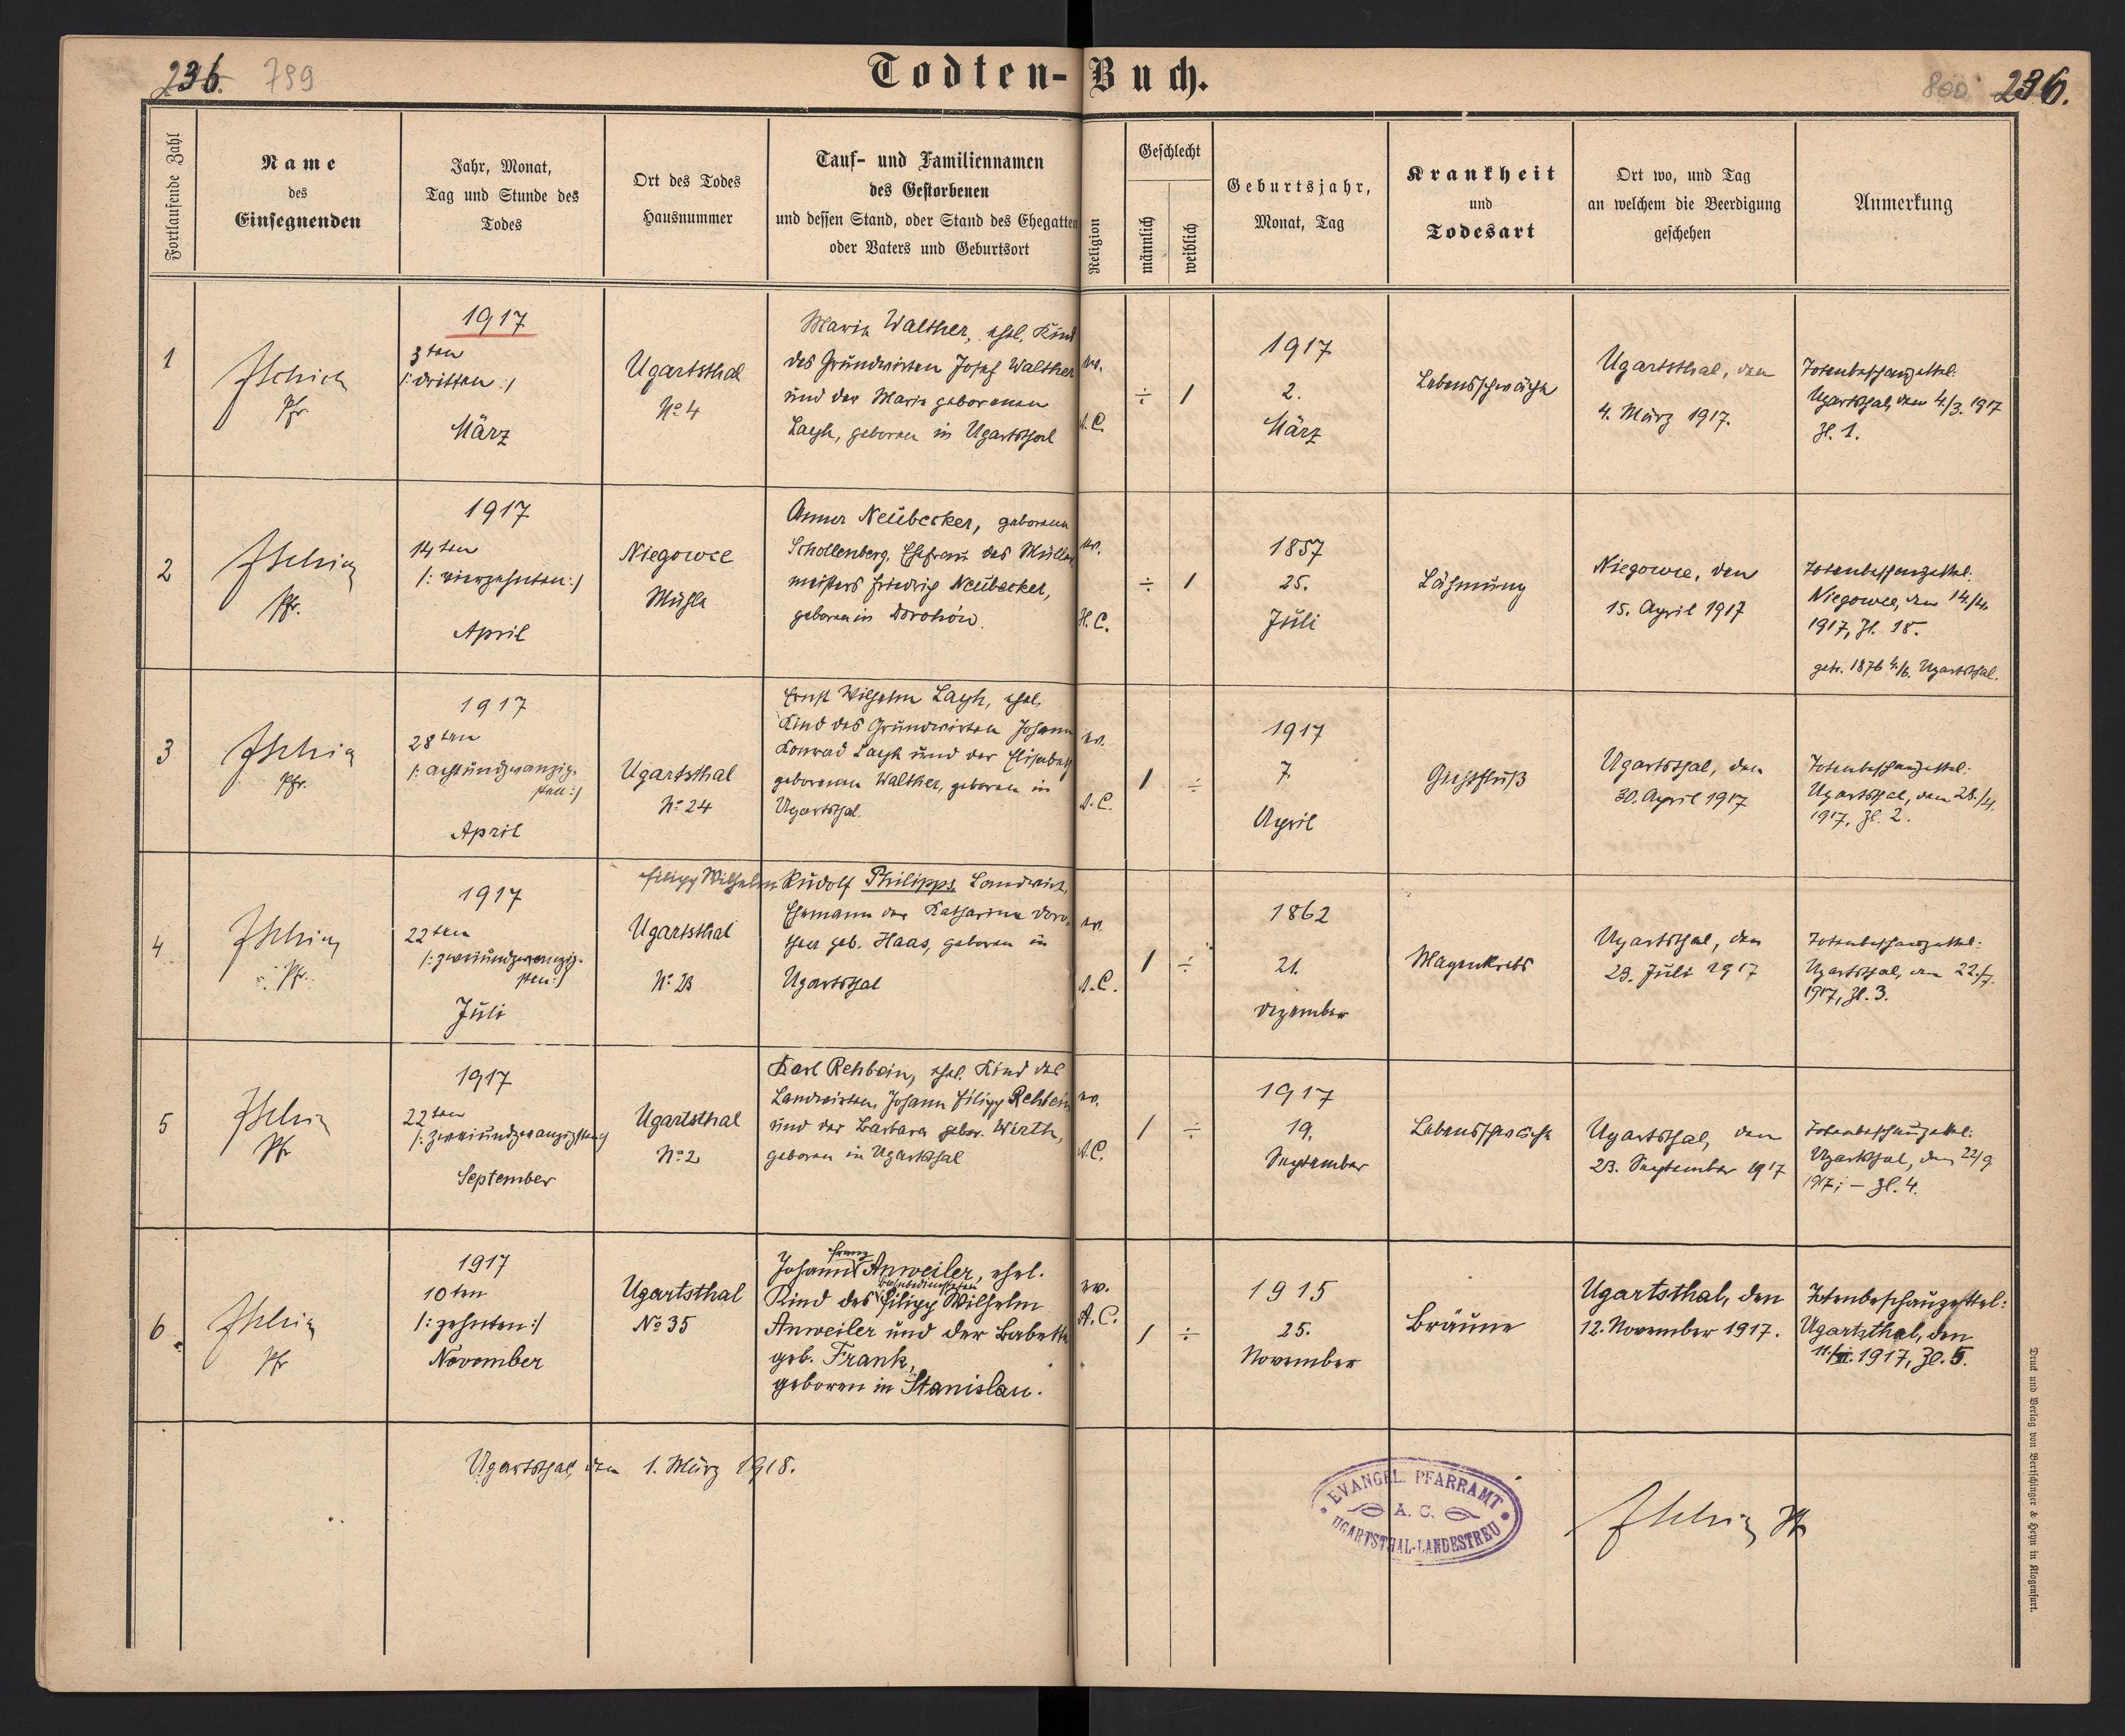 236. 799
Todten-Buch.
800 236.
Fortlaufende Zahl
Name
des
Einsegnenden
Jahr, Monat,
Tag und Stunde des
Todes
Ort des Todes
Hausnummer
Tauf- und Familiennamen
des Gestorbenen
und dessen Stand, oder Stand des Ehegatten
oder Vaters und Geburtsort
Religion
Geschlecht
männlich
weiblich
Geburtsjahr,
Monat, Tag
Krankheit
und
Todesart
Ort wo, und Tag
an welchem die Beerdigung
geschehen
Anmerkung
1
Pfr.
1917
3ten
/: dritten :/
März
Ugartsthal
No 4
Maria Walther, ehel. Kind
des Grundwirten Josef Walther
und der Maria geborenen
Layh, geboren in Ugartsthal
ev.
A.C.
÷ 1
1917
2.
März
Lebensschwäche
Ugartsthal, den
4. März 1917.
Totenbeschauzettel:
Ugartsthal, den 4./3. 1917
Zl. 1.
2
Pfr.
1917
14ten
/: vierzehnten :/
April
Niegowce
Mühle
Anna Neubecker, geborene
Schollenberg, Ehefrau des Müller-
meisters Friedrich Neubecker,
geboren in Dorohów.
ev.
H.C.
÷ 1
1857
25.
Juli
Lähmung
Niegowce, den
15. April 1917
Totenbeschauzettel:
Niegowce, den 14./4.
1917, Zl. 18.
getr. 1876 4./6. Ugartsthal.
3
Pfr.
1917
28ten
/: achtundzwanzig-
sten :/
April
Ugartsthal
No 24
Ernst Wilhelm Layh, ehel.
Kind des Grundwirten Johann
Konrad Layh und der Elisabeth
geborenen Walther, geboren in
Ugartsthal.
ev.
A.C.
1 ÷
1917
7.
April
Ugartsthal, den
30. April 1917
Totenbeschauzettel:
Ugartsthal, den 28./4.
1917, Zl. 2.
4
Pfr.
1917
22ten
/: zweiundzwanzig-
sten :/
Juli
Ugartsthal
No 23
Filipp Wilhelm Rudolf Philipps, Landwirt,
Ehemann der Katharina Doro-
thea geb. Haas, geboren in
Ugartsthal
ev.
A.C.
1 ÷
1862
21.
Dezember
Magenkrebs
Ugartsthal, den
23. Juli 1917
Totenbeschauzettel:
Ugartsthal, den 22./7.
1917, Zl. 3.
5
Pfr
1917
22ten
/: zweiundzwanzigsten :/
September
Ugartsthal
No 2
Karl Rehbein, ehel. Kind des
Landwirten Johann Filipp Rehbein
und der Barbara gebor. Wirth,
geboren in Ugartsthal
ev.
A.C.
1 ÷
1917
19.
September
Lebensschwäche
Ugartsthal, den
23. September 1917
Totenbeschauzettel:
Ugartsthal, den 22/9
1917; – Zl. 4.
6.
Pfr
1917
10ten
/: zehnten :/
November
Ugartsthal
No 35
Franz
Johann Anweiler, ehel.
Bahnbediensteten
Kind des Filipp Wilhelm
Anweiler und der Babette
geb. Frank,
geboren in Stanislau.
ev.
A.C.
1 ÷
1915
25.
November
Bräune
Ugartsthal, den
12. November 1917.
Totenbeschauzettel:
Ugartsthal, den
1917, Zl. 5.
Ugartsthal, den 1. März 1918.
EVANGEL. PFARRAMT
A. C.
UGARTSTHAL-LANDESTREU
Pfr
Druck und Verlag von Bertschinger & Heyn in Klagenfurt.